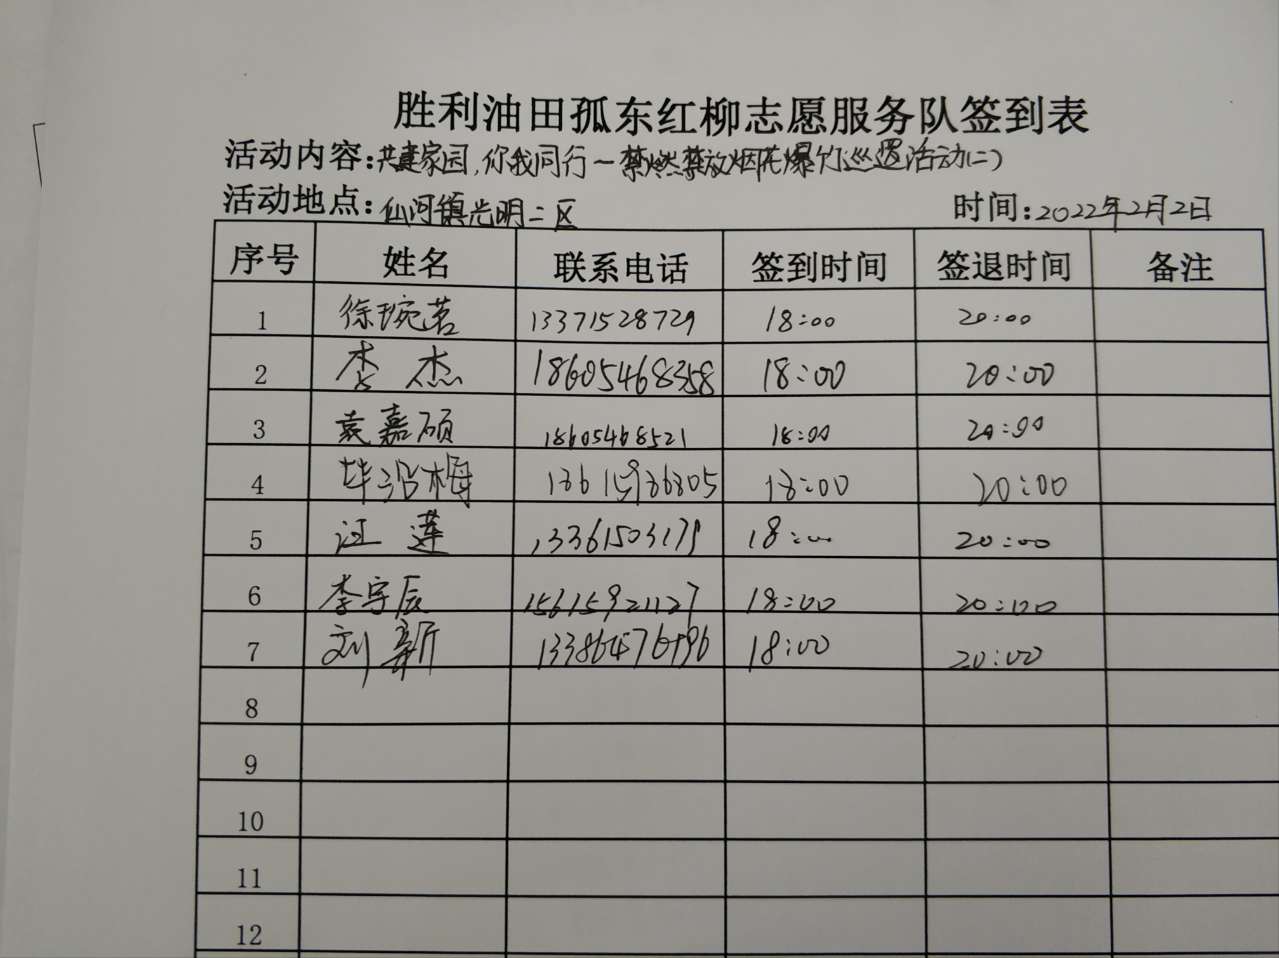 胜利油田孤东红柳志愿服务队签到表
活动内容:共建家园,你我同行一禁燃禁放烟花爆竹巡逻活动(二)
活动地点:仙河镇光明二区 时间:2022年2月2日
序号 姓名 联系电话 签到时间 签退时间 备注
1 徐琬茗 13371528729 18:00 20:00
2 李杰 18605468358 18:00 20:00
3 袁嘉硕 18605468521 18:00 20:00
4 18:00 20:00
5 汪莲 13361503179 18:00 20:00
6 李宇辰 15615921127 18:00 20:00
7 刘新 18:00 20:00
8
9
10
11
12